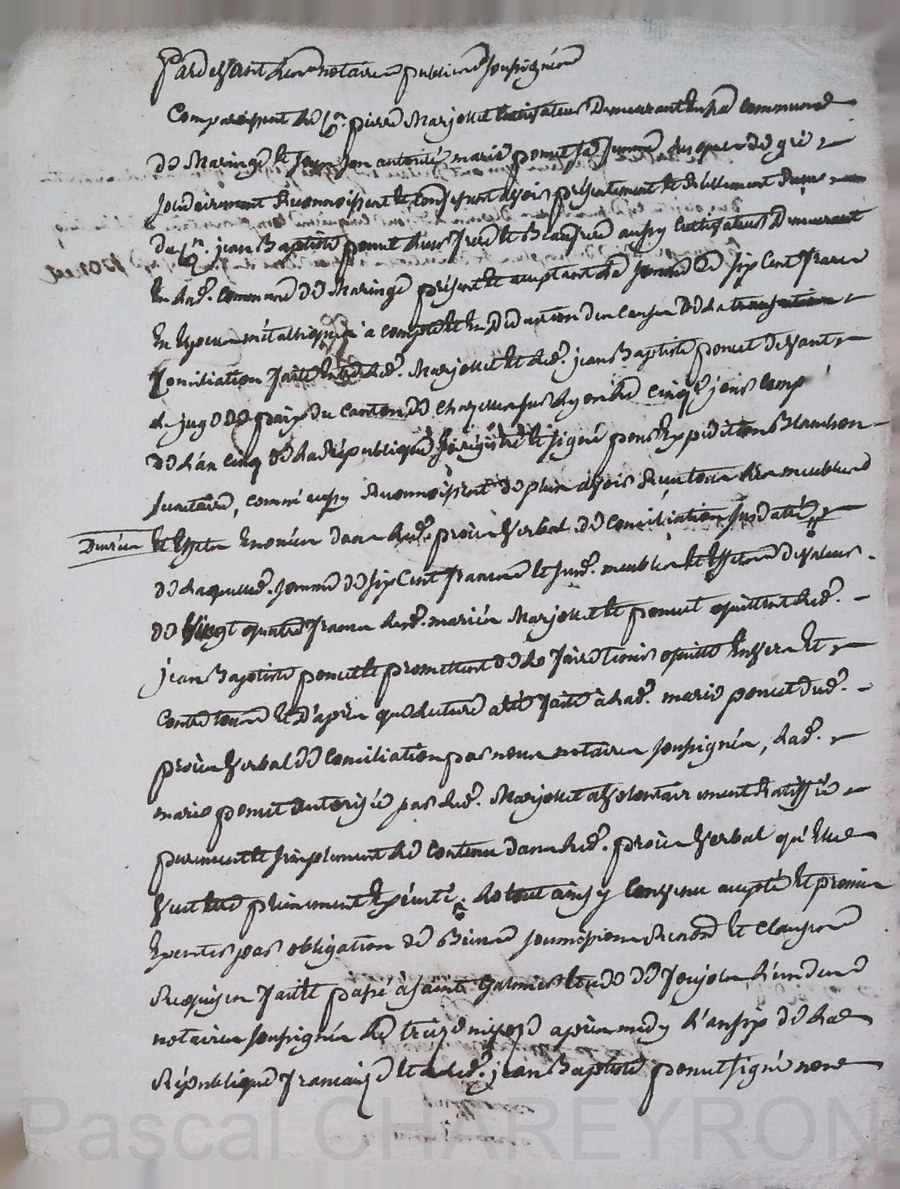 Pardevant les notaires publics soussignés
Comparaissent le Cn. pierre Marjollet cultivateur demeurant en la commune
de Maringe et sous son autorité marie poncet sa femme, lesquels de gré
solidairement reconnoissent et confessent avoir présentement et réellement
du Cn. jean Baptiste poncet leur frere et Beaufrere aussy cultivateur demeurant
en lad. commune de Maringe présent et acceptant la somme de six cent francs
en especes métalliques à compte et en déduction du de la
conciliation faite entre led. Marjollet et led. jean Baptiste poncet devant
le juge de paix du canton de Chazelles sur Lyon le cinq jours comp.
de l'an cinq de la république enregistré et signé pour expédition Blanchon
secretaire, comme aussy reconnoissent de plus avoir reçu tous les meubles
et effets énoncés dans led. procès verbal de conciliation susdaté,
de laquelle somme de six cent francs et susd. meubles et effets de valeur
de vingt quatre francs lesd. mariés Marjollet et poncet quittent led.
jean Baptiste poncet et promettent de le faire tenir quitte envers et
contre tous et d'après que lecture a été faite à lad. marie poncet dud.
procès verbal de conciliation par nous notaires soussignés, lad.
marie poncet autorisée par led. Marjollet a volontairement ratiffié
purement et simplement le contenu dans led. procès verbal qu'elle
veut être pleinement exécuté. le tout ainsy convenu accepté et promis
executer par obligation de Biens soumissions renond. et clauses
requises fait et passé à saint Galmier étude de l'un des
notaires soussignés le treize nivose après midy l'an six de la
République française et a led. jean Baptiste poncet signé non
Pascal CHAREYRON